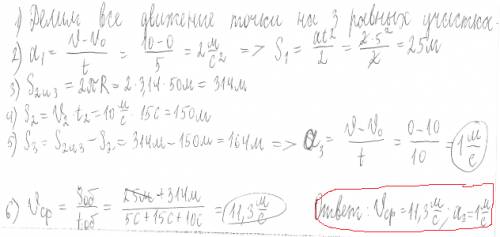 1) Делим все движение точки на 3 равных участка.
2) a₁ = (v - v₀)/t = (10-0)/5 = 2 м/с² => S₁ = at²/2 = 2·5²/2 = 25м
3) S₂и₃ = 2πR = 2·3,14·50м = 314м
4) S₂ = V₂·t₂ = 10 м/с · 15с = 150м
5) S₃ = S₂и₃ - S₂ = 314м - 150м = 164м => a₃ = (v - v₀)/t = (0-10)/10 = 1 м/с
6) Vср = Sоб/tоб = (25м + 314м)/(5с + 15с + 10с) = 11,3 м/с
Ответ: Vср = 11,3 м/с; a₃ = 1 м/с